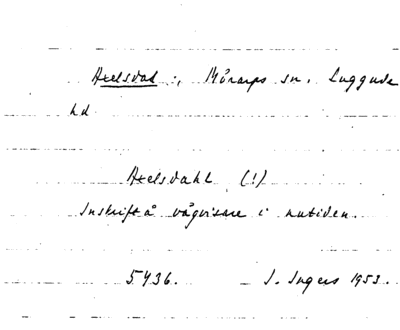 Axelsvad :, Mörarps sn. Luggude
hd
Axelsvahl (!)
Inskrift å vägvisare i nutiden.
5436. I. Ingers 1953.